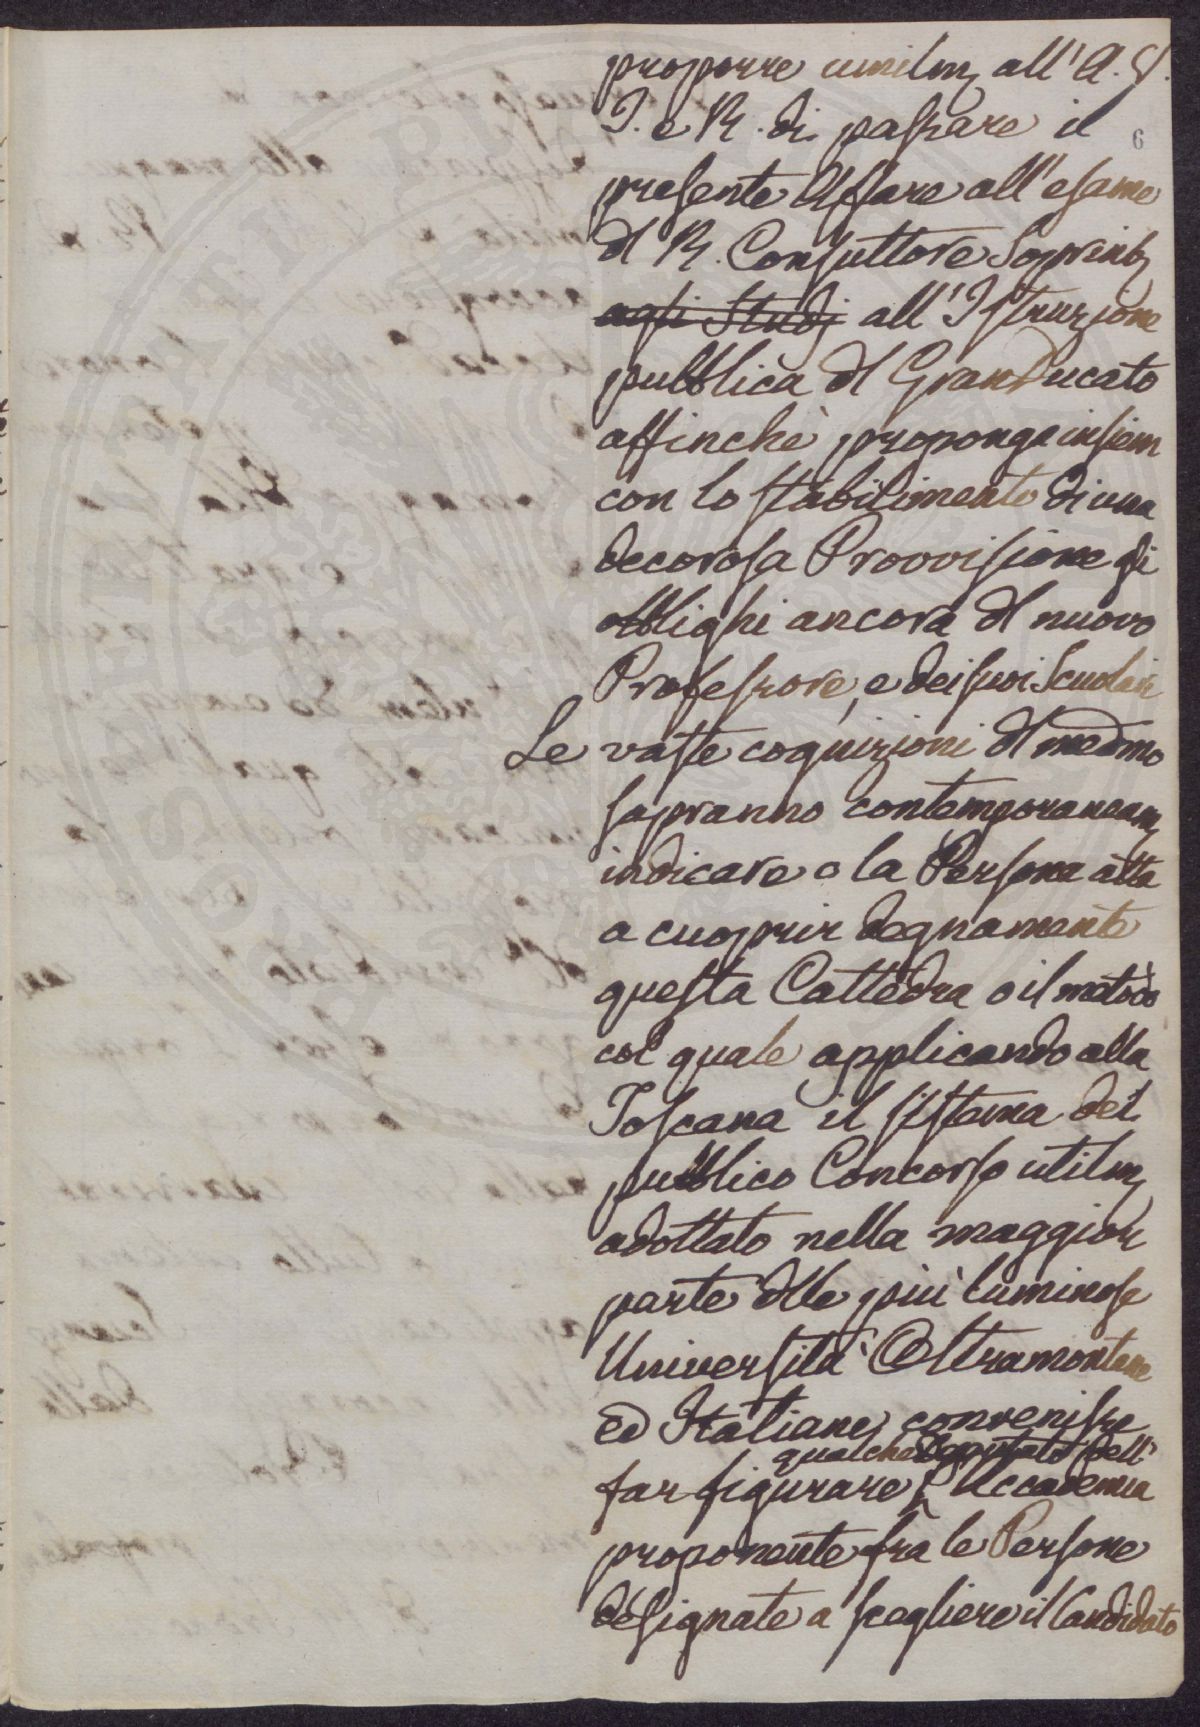 proporre umilm. all'A. V.
I. e R. di passare il
6
presente Affare all'esame
dl R. Consultore Soprint.
agli Studj all'Istruzione
pubblica dl GranDucato
affinchè proponga insiem
con lo stabilimento di una
decorosa Provvisione gli
obblighi ancora dl nuovo
Professore, e dei suoi Scuolari
Le vaste cognizioni dl medmo
sapranno contemporaneam.
indicare o la Persona atta
a cuoprir degnamente
questa Cattedra o il metodo
col quale applicando alla
Toscana il sistema del
pubblico Concorso utilm.
adottato nella maggior
parte dlle più luminose
Università Oltramontane
ed Italiane, convenisse
qualche Deputato dell'
far figurare Accademia
proponente fra le Persone
designate a scegliere il Candidato